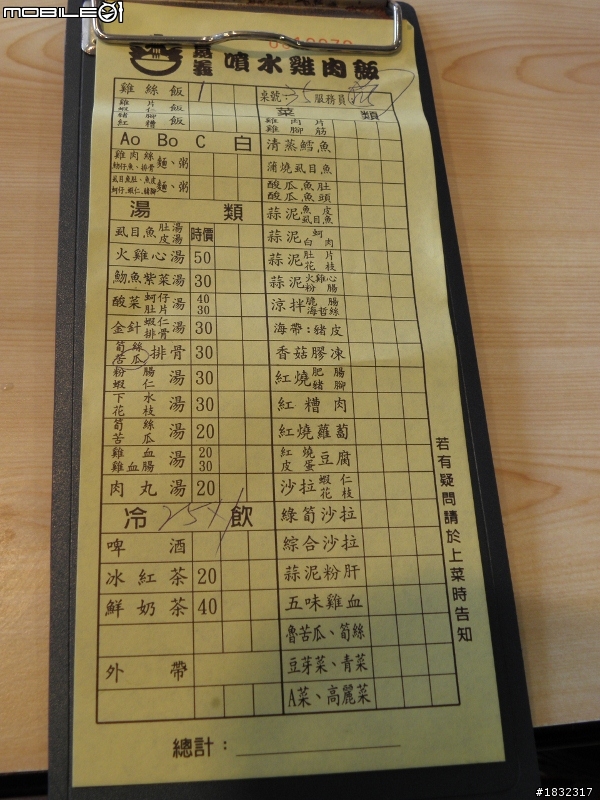 MOBILE01
嘉義 噴水雞肉飯
雞絲飯 1
雞片 蝦仁 紅糟 飯
Ao Bo C 白
雞肉絲 魩仔魚、排骨 麵、粥
虱目魚肚、魚皮 蚵仔、蝦仁、豬腳 麵、粥
湯 類
虱目魚 肚湯 皮湯 時價
火雞心湯 50
魩魚紫菜湯 30
酸菜 蚵仔 肚片 湯 40 30
金針 蝦仁 排骨 湯 30
筍絲 苦瓜 排骨 30
粉腸 蝦仁 湯 30
下水 花枝 湯 30
筍絲 苦瓜 湯 20
雞血 雞血腸 湯 20 30
肉丸湯 20
冷 飲
啤酒
冰紅茶 20
鮮奶茶 40
外帶
桌號 35 服務員
菜 類
雞肉片 雞腳筋
清蒸鱈魚
蒲燒虱目魚
酸瓜魚肚 酸瓜魚頭
蒜泥 魚皮 虱目魚
蒜泥 蚵 白肉
蒜泥 肚片 花枝
蒜泥 火雞心 粉腸
涼拌 脆腸 海哲絲
海帶:豬皮
香菇膠凍
紅燒 肥腸 豬腳
紅糟肉
紅燒蘿蔔
紅燒 皮蛋 豆腐
沙拉 蝦仁 花枝
綠筍沙拉
綜合沙拉
蒜泥粉肝
五味雞血
魯苦瓜、筍絲
豆芽菜、青菜
A菜、高麗菜
若有疑問請於上菜時告知
總計：
#1832317